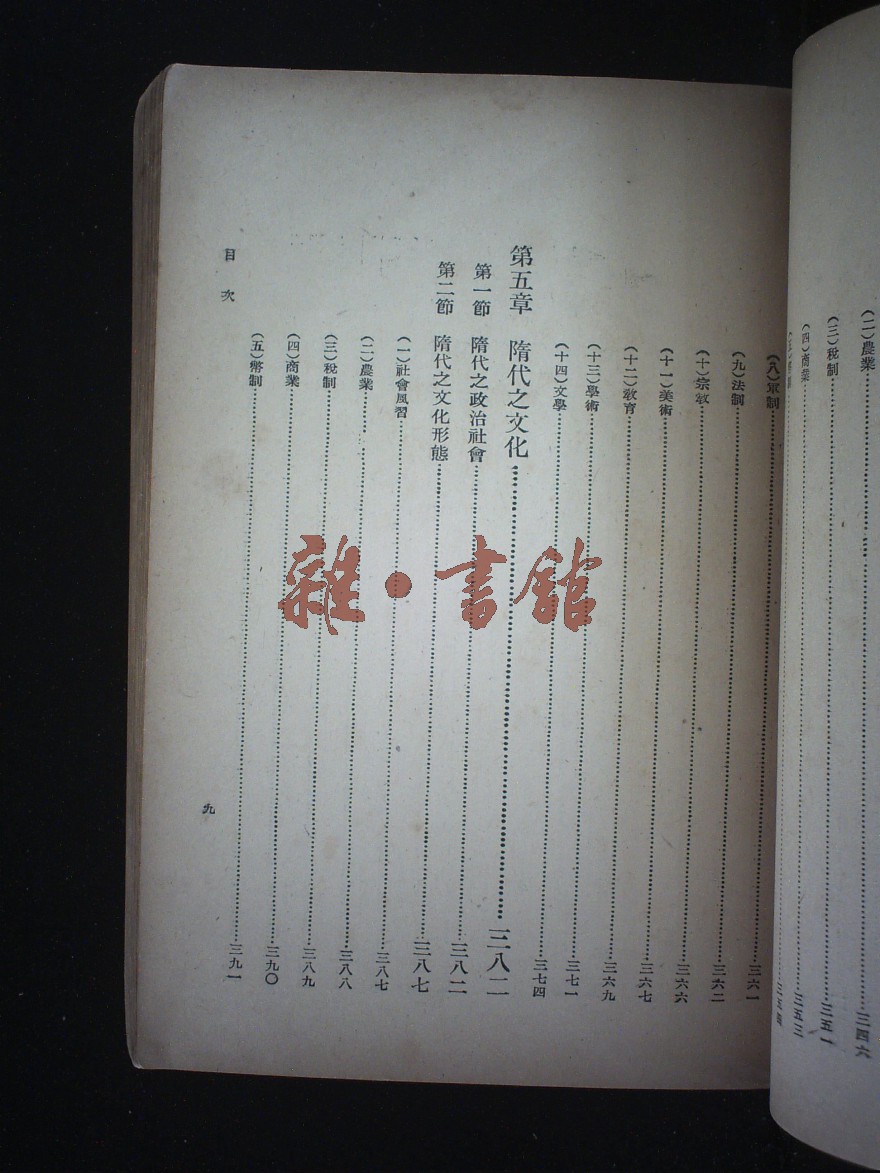 (二)農業……三四六
(三)稅制……三五一
(四)商業……三五三
(八)軍制……三六一
(九)法制……三六二
(十)宗敎……三六六
(十一)美術……三六七
(十二)敎育……三六九
(十三)學術……三七一
(十四)文學……三七四
第五章 隋代之文化……三八二
第一節 隋代之政治社會……三八二
第二節 隋代之文化形態……三八七
(一)社會風習……三八七
(二)農業……三八八
(三)稅制……三八九
(四)商業……三九〇
(五)幣制……三九一
目次
九
雜·書館